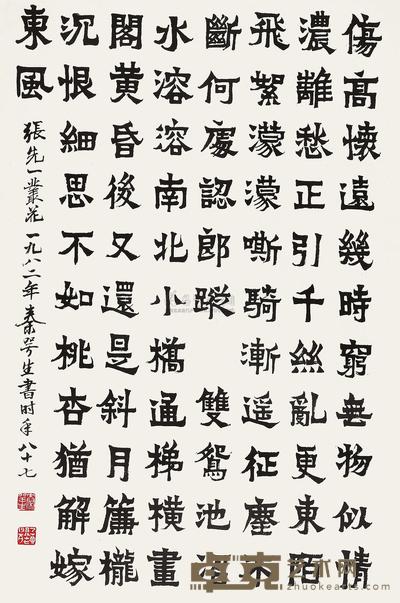 傷高懷遠幾時窮無物似情
濃離愁正引千絲亂更東陌
飛絮濛濛嘶騎漸遙征塵不
斷何處認郎蹤 雙鴛池沼
水溶溶南北小橋通梯橫畫
閣黃昏後又還是斜月簾櫳
沉恨細思不如桃杏猶解嫁
東風
張先一叢花 一九八二年秦咢生書时年八十七
卓克艺术网
zhuokearts.com